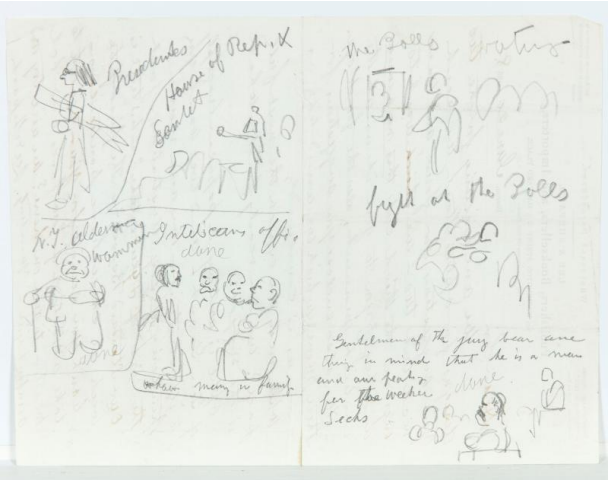 Presidentes
House of Rep. &
Senket
N.Y. alderma
wommen
Intelicans offi.
done
done
many in family
the Polls voting
fight at the Polls
Gentelmen of the jury bear one
thing in mind that he is a man
and our
for the weeker
Secks
done